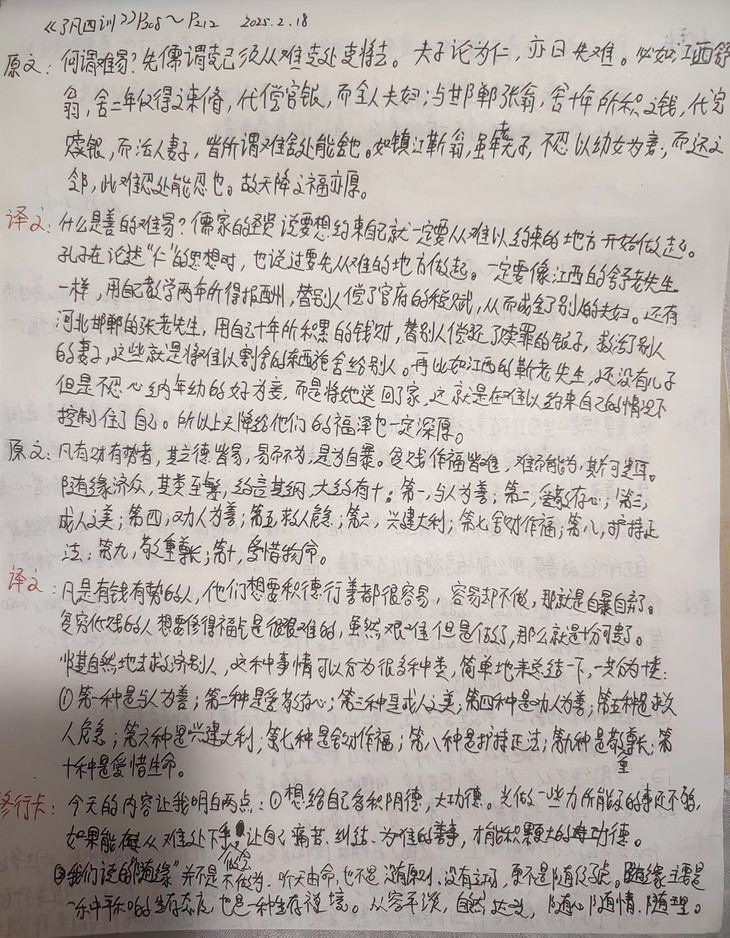 《了凡四训》P208~P212 2025.2.18
原文：何谓难易？先儒谓克己须从难克处克将去。夫子论为仁，亦曰先难。必如江西舒
翁，舍二年仅得之束脩，代偿官银，而全人夫妇；与邯郸张翁，舍十年所积之钱，代完
赎银，而活人妻子，皆所谓难舍处能舍也。如镇江靳翁，虽年老无子，不忍以幼女为妾，而还之
邻，此难忍处能忍也。故天降之福亦厚。
译文：什么是善的难易？儒家的圣贤说要想约束自己就一定要从难以约束的地方开始做起。
孔子在论述“仁”的思想时，也说过要先从难的地方做起。一定要像江西的舒老先生
一样，用自己教学两年所得报酬，替别人偿了官府的税赋，从而成全了别人的夫妇。还有
河北邯郸的张老先生，用自己十年所积累的钱财，替别人偿还了赎罪的银子，救活了别人
的妻子，这些就是将难以割舍的东西施舍给别人。再比如江西的靳老先生，还没有儿子
但是不忍心纳年幼的女子为妾，而是将她送回了家，这就是在难以约束自己的情况下
控制住了自己。所以上天降给他们的福泽也一定深厚。
原文：凡有财有势者，其立德皆易，易而不为，是为自暴。贫贱作福皆难，难而能为，斯可贵耳。
随缘济众，其类至繁，约言其纲，大约有十：第一，与人为善；第二，爱敬存心；第三，
成人之美；第四，劝人为善；第五，救人危急；第六，兴建大利；第七，舍财作福；第八，护持正
法；第九，敬重尊长；第十，爱惜物命。
译文：凡是有钱有势的人，他们想要积德行善都很容易，容易却不做，那就是自暴自弃。
贫穷低贱的人想要修得福气是很艰难的，虽然艰难但是做了，那么就是十分可贵了。
顺其自然地去救济别人，这种事情可以分为很多种类，简单地来总结一下，一共分为十类：
①第一种是与人为善；第二种是爱敬存心；第三种是成人之美；第四种是劝人为善；第五种是救
人危急；第六种是兴建大利；第七种是舍财作福；第八种是护持正法；第九种是敬重尊长；第
十种是爱惜生命。
修行卡：今天的内容让我明白两点：①想给自己多积阴德，大功德。光做一些力所能及的事还不够，
如果能从难处下手，做些让自己痛苦、纠结、为难的善事，才能积累大的功德。
②我们说的“随缘”并不是不作为、听天由命，也不是没有原则、没有立场，更不是随便了事。随缘主要是
一种平和的生存态度，也是一种生存禅境。从容平淡，自然达观，随心、随情、随理。